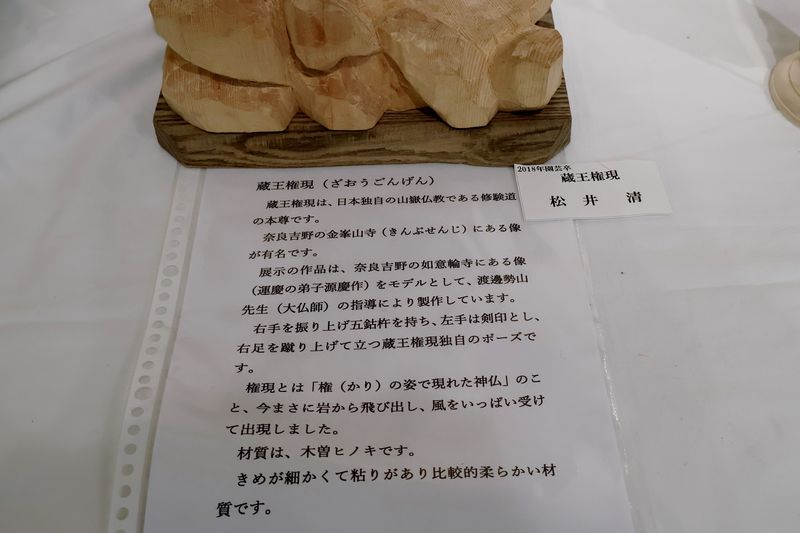 蔵王権現（ざおうごんげん）
蔵王権現は、日本独自の山嶽仏教である修験道
の本尊です。
奈良吉野の金峯山寺（きんぷせんじ）にある像
が有名です。
展示の作品は、奈良吉野の如意輪寺にある像
（運慶の弟子源慶作）をモデルとして、渡邊勢山
先生（大仏師）の指導により製作しています。
右手を振り上げ五鈷杵を持ち、左手は剣印とし、
右足を蹴り上げて立つ蔵王権現独自のポーズで
す。
権現とは「権（かり）の姿で現れた神仏」のこ
と、今まさに岩から飛び出し、風をいっぱい受け
て出現しました。
材質は、木曽ヒノキです。
きめが細かくて粘りがあり比較的柔らかい材
質です。
2018年園芸卒
蔵王権現
松井 清